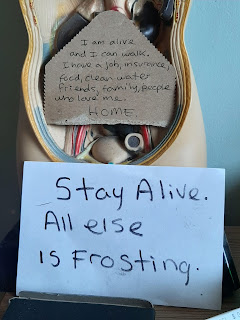 I am alive
and I can walk.
I have a job, insurance,
food, clean water
friends, family, people
who love me.
HOME.
Stay Alive.
All else
is Frosting.